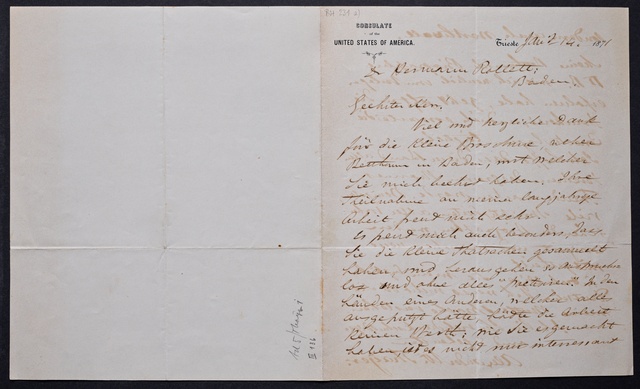 CONSULATE
of the
UNITED STATES OF AMERICA.
Trieste 14. 1871
Hermann Rollett,
Baden.
Geehrter Herr.
Viel und herzlichen Dank
für die kleine Broschüre, ueber
in Baden, mit welcher
Sie mich beehrt haben. Ihre
Theilnahme an meiner langjährige
Arbeit freut mich sehr.
Es freut mich auch besonders, dass
Sie die kleine Thatsachen gesammelt
haben, und herausgeben so anspruchs
los und ohne alles In den
Händen eines Anderen, welcher alles
ausgeputzt hätte, hätte die Arbeit
keinen Werth; wie Sie es gemacht
haben, ist es nicht nur interessant